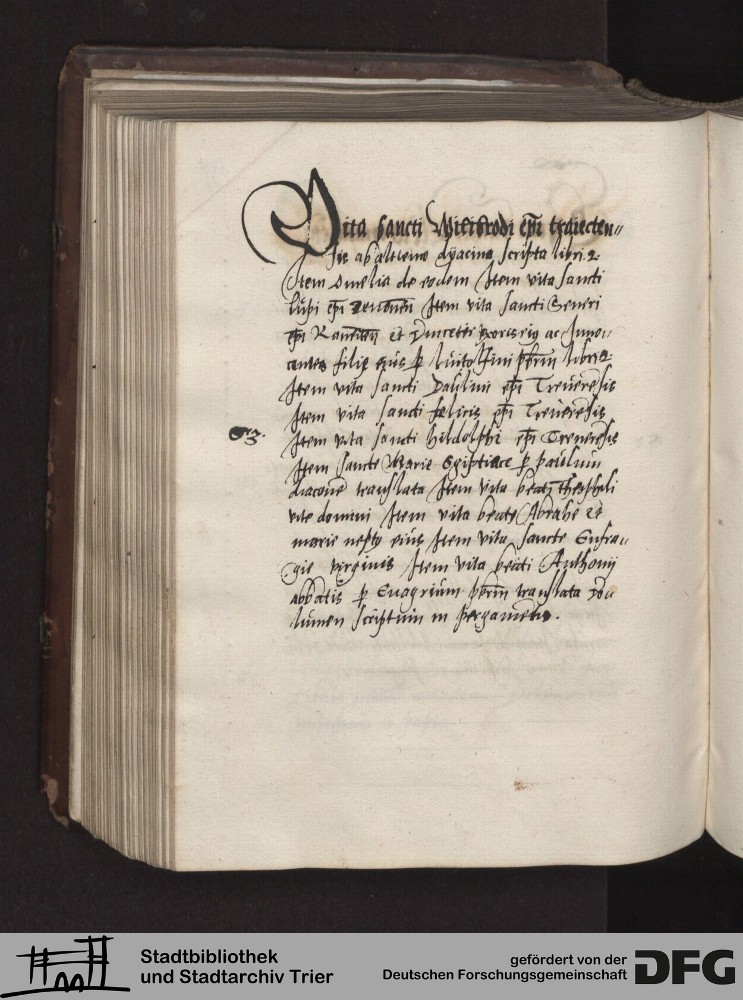 Vita sancti Wilibrodi epi traiecten„
sis ab altiwino dyacino scripta libri .2.
Item Omelia de eodem Item vita sancti
lupi epi Item vita sancti Seueri
epi et ac Inno„
filie eius p presbm libri .2.
Item vita sancti Paulini epi Treuerēsis
Item vita sancti felicis epi Treuerēsis
Item vita sancti hildolphi epi Treuerēsis
Item sancte Marie Egiptiace p paulum
diaconē translata Item vita beati Theophili
vite domini Item vita beate Abrahe et
marie nepte eius Item vita sancte Eufra„
gie virginis Item vita beati Anthonij
abbatis p Euagrium pbrm translata vo„
lumen scriptum in pergameno.
Stadtbibliothek
und Stadtarchiv Trier
gefördert von der
Deutschen Forschungsgemeinschaft
DFG